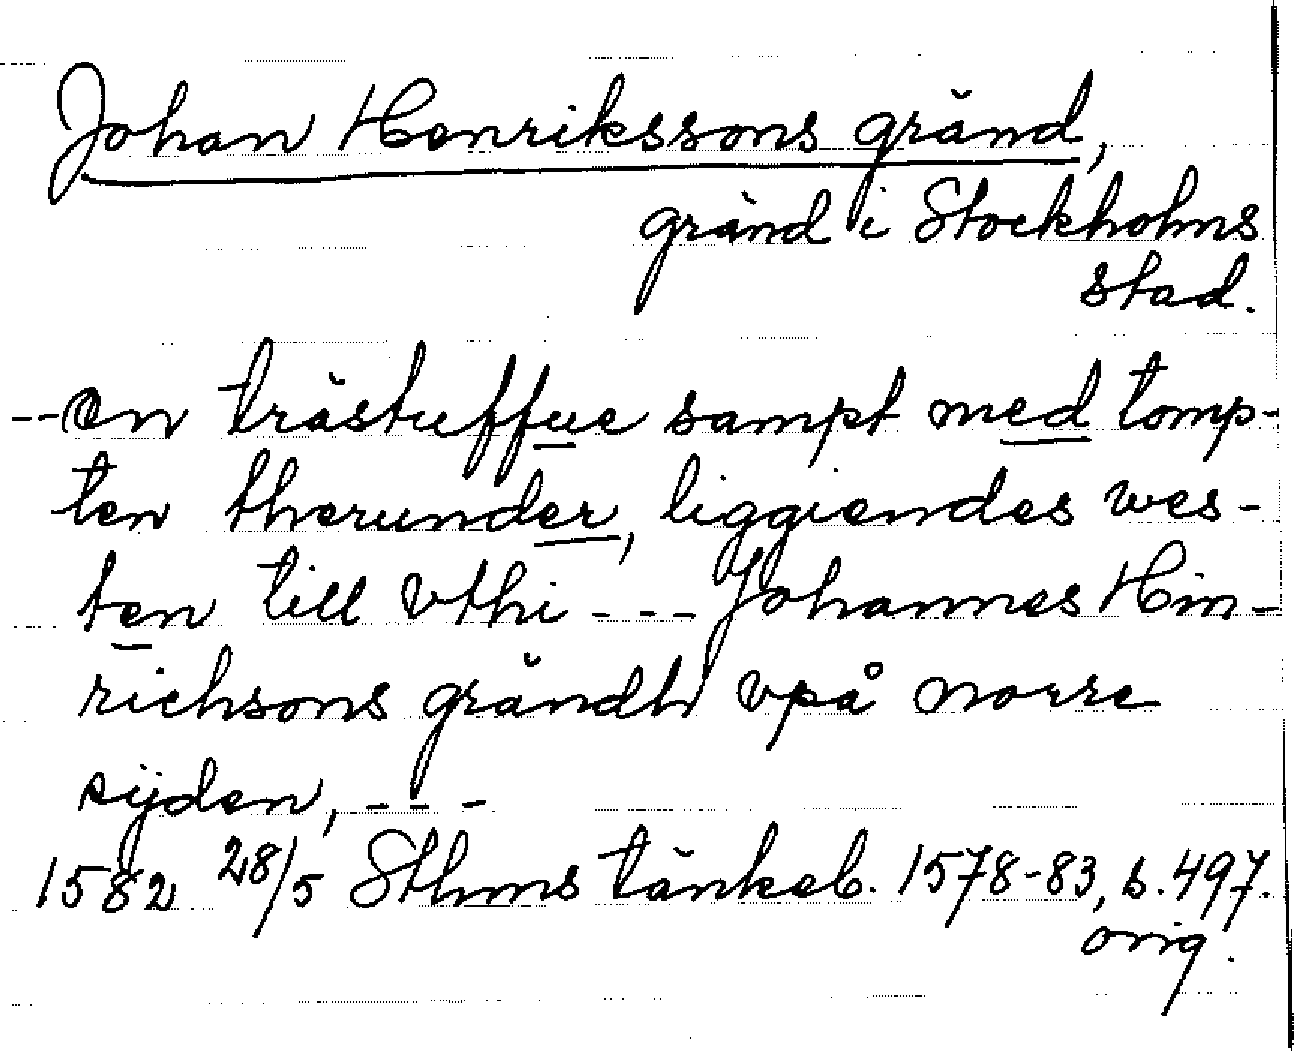 Johan Henrikssons gränd,
gränd i Stockholms
stad.
--en trästuffue sampt med tomp-
ten therunder, liggiendes wes-
ten till vthi --- Johannes Hin-
richsons grändh vpå norre
sijden, ---
1582 28/5 Sthms tänkeb. 1578-83, s. 497.
orig.